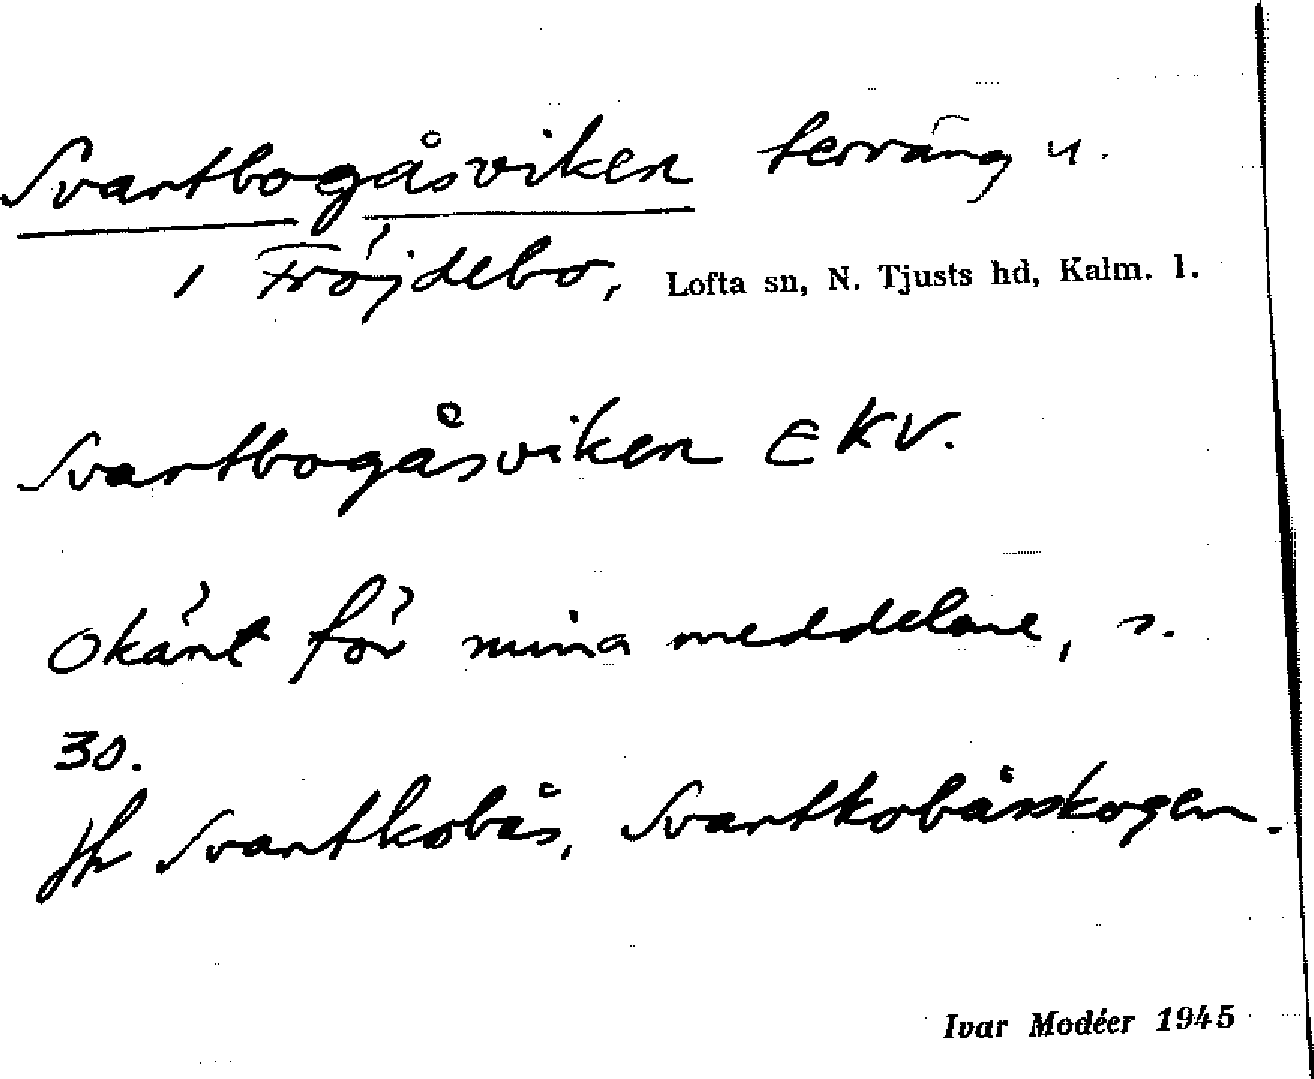 Svartbogåsviken terräng n.
i Fröjdebo, Lofta sn, N. Tjusts hd, Kalm. l.
Svartbogåsviken EKV.
Okänt för mina meddelare, s.
30.
Jfr Svartkobås, Svartkobåsskogen.
Ivar Modéer 1945